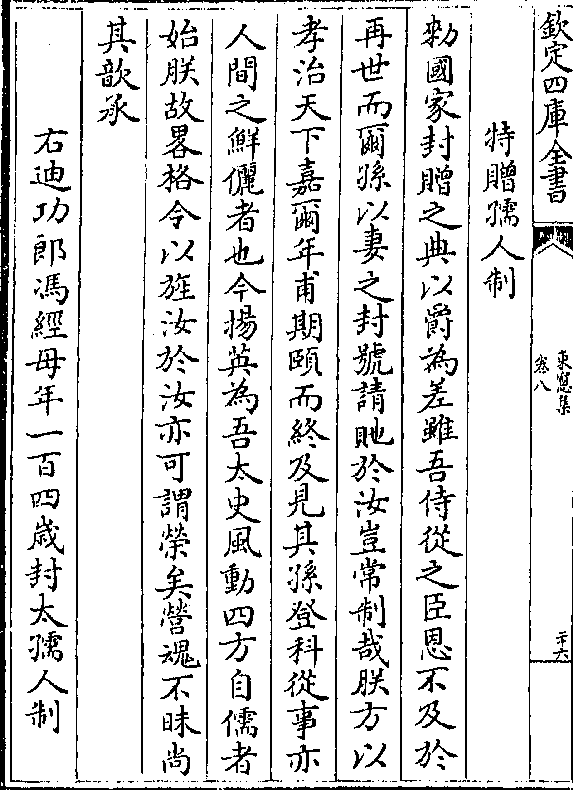 欽定四庫全書
東牕集
卷八
二十六
特贈孺人制
勅國家封贈之典以爵為差雖吾侍從之臣恩不及於
再世而爾孫以妻之封號請貤於汝豈常制哉朕方以
孝治天下嘉爾年甫期頤而終及見其孫登科從事亦
人間之鮮儷者也今揚英為吾太史風動四方自儒者
始朕故畧格令以旌汝於汝亦可謂榮矣營魂不昧尚
其歆承
右迪功郎馮經母年一百四歲封太孺人制